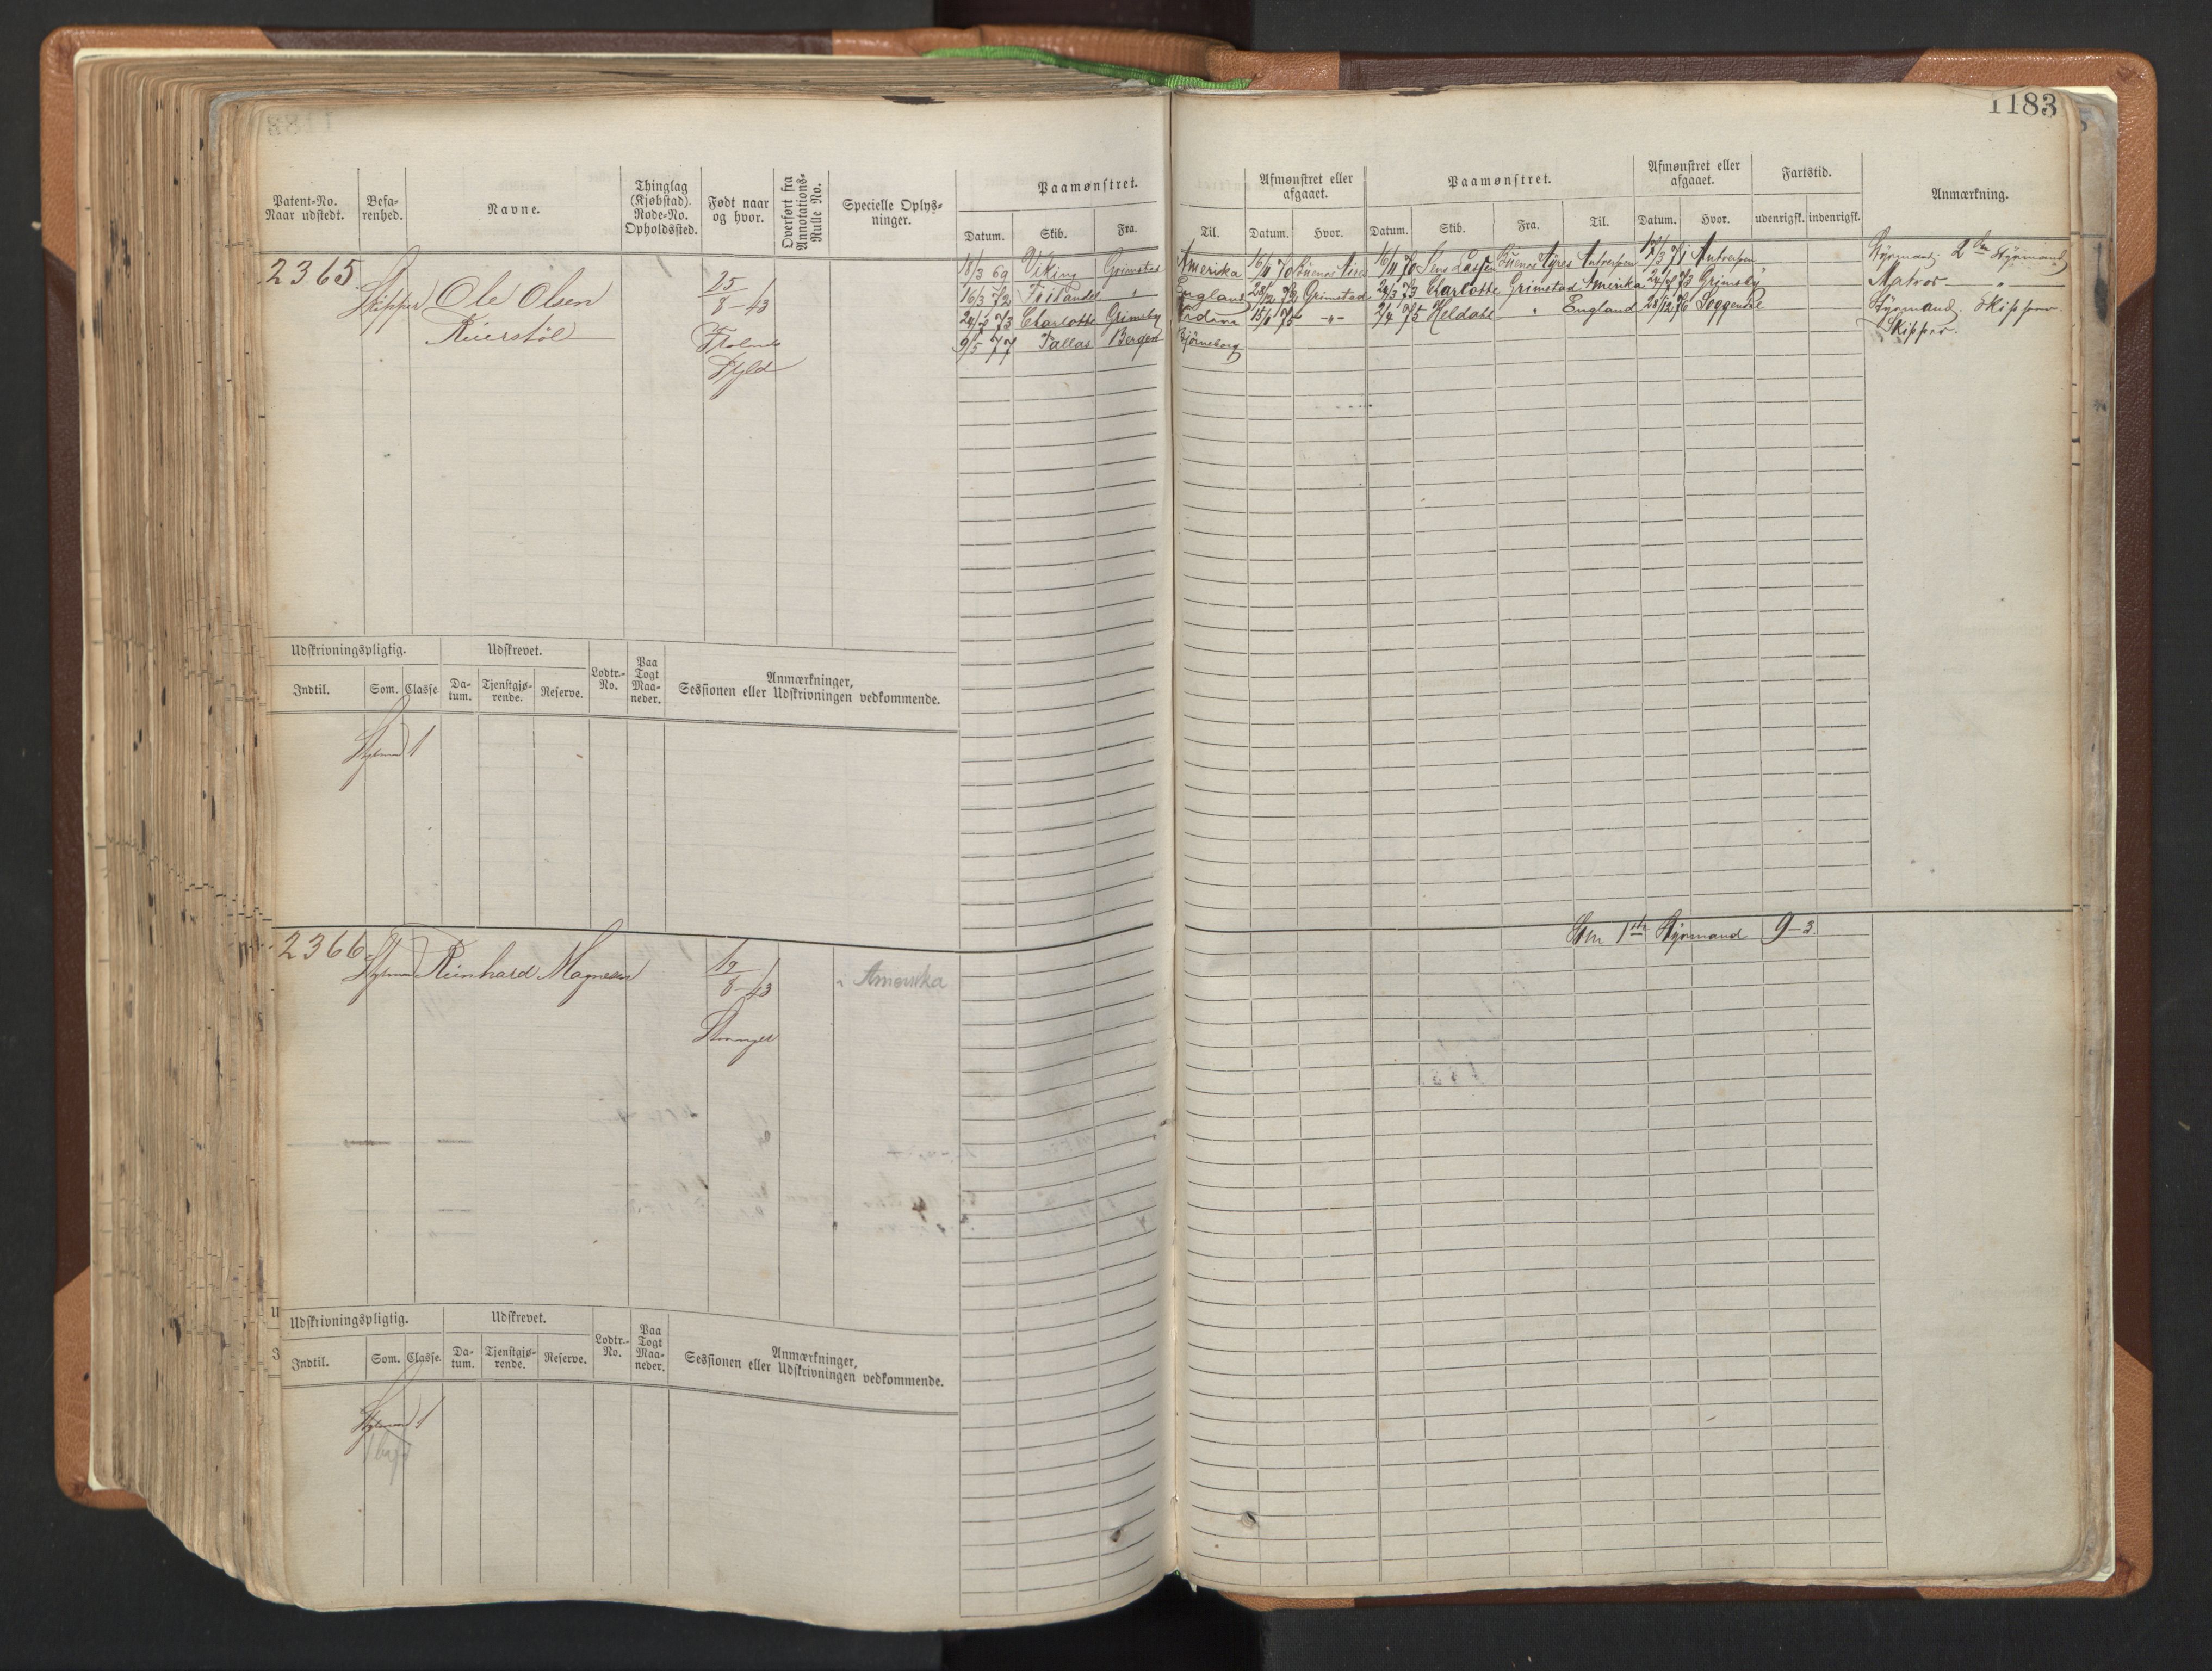 1183
Patent-No. Naar udstedt.
Befarenhed.
Navne.
Thinglag (Kjøbstad). Rode-No. Opholdssted.
Født naar og hvor.
Overført fra Annotations-Rulle No.
Specielle Oplysninger.
Paamønstret.
Datum. Skib. Fra. Til.
Afmønstret eller afgaaet.
Datum. Hvor.
Paamønstret.
Datum. Skib. Fra. Til.
Afmønstret eller afgaaet.
Datum. Hvor.
Fartstid.
udenrigsk. indenrigsk.
Anmærkning.
2365.
Skipper
Ole Olsen
25/8-43
18/3 69 Viking Grimstad Amerika 16/11 70 Buenos Aires 16/11 70 Buenos Ayres Antwerpen Antwerpen Styrmand. 2den Styrmand
16/3 72 " England Grimstad 24/3 73 Charlotte Grimstad Amerika Grimsby Matros "
73 Charlotte Grimsby 75 -"- 2/4 75 Heldahl " England 28/12 76 Styrmand. Skipper.
9/5 77 Pallas Bergen Bjørneborg Skipper.
Udskrivningspligtig.
Indtil. Som. Classe
Udskrevet.
Datum. Tjenstgjørende. Reserve.
Lodtr.-No.
Paa Togt Maaneder.
Anmærkninger,
Sessionen eller Udskrivningen vedkommende.
Styrmand 1
2366.
Styrmand
Reinhard Magnesen
8-43
Amerika
1ste Styrmand 9-3.
Udskrivningspligtig.
Indtil. Som. Classe.
Udskrevet.
Datum. Tjenstgjørende. Reserve.
Lodtr.-No.
Paa Togt Maaneder.
Anmærkninger,
Sessionen eller Udskrivningen vedkommende.
Styrmand 1